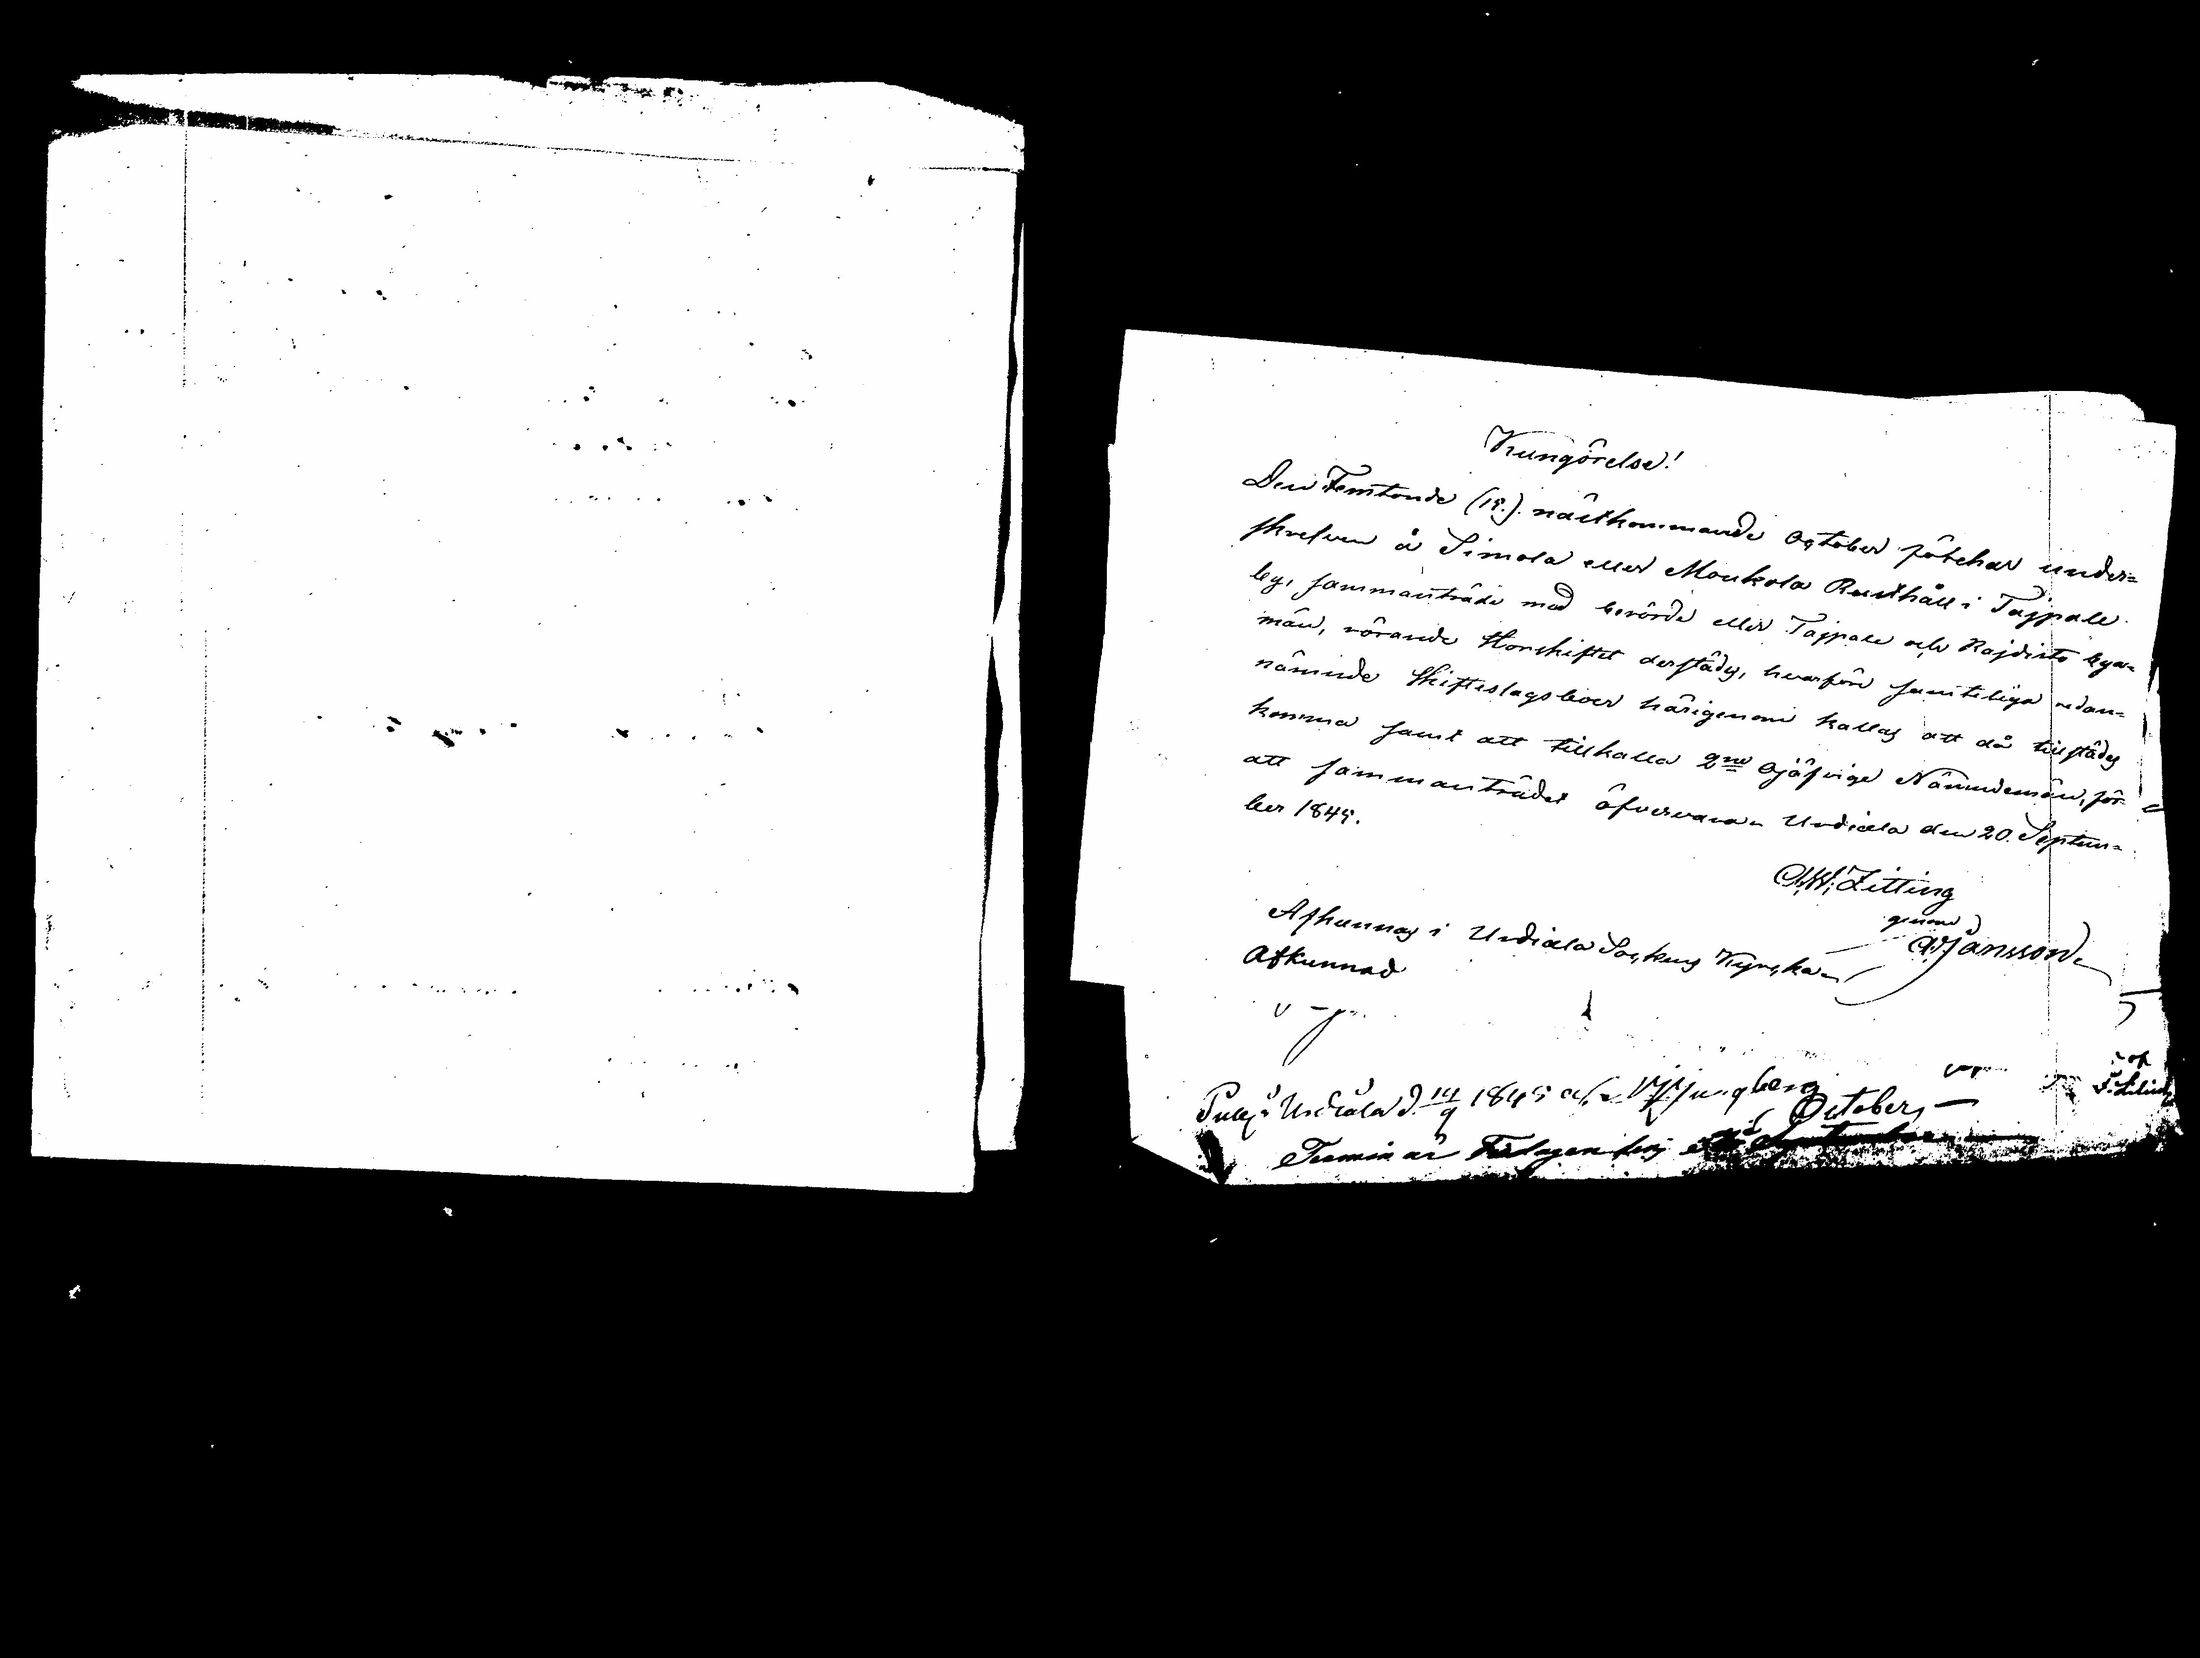 Kungörelse!
Den Femtonde (15.) nästkommande October förehar under-
skrefven å Simola eller Monkola Rusthåll i Tajpale
by, sammanträde med berörde eller Tajpale och Kojdisto bya-
män, rörande Storskiftet derstädes, hvarföre samtelige nedan-
nämnde Skifteslagsboer härigenom kallas att då tillstädes
komma samt att tillkalla 2ne Ojäfvige Nämndemän, för
att sammanträdet öfvervara. Urdiala den 20. Septem-
ber 1845.
A.W. Zitting
genom
Jansson
Afkunnas i Urdiala Sockens Kyrcka
Afkunnad
Urdiala d. 14/9 1845 af Ljungberg
October,
Termin är